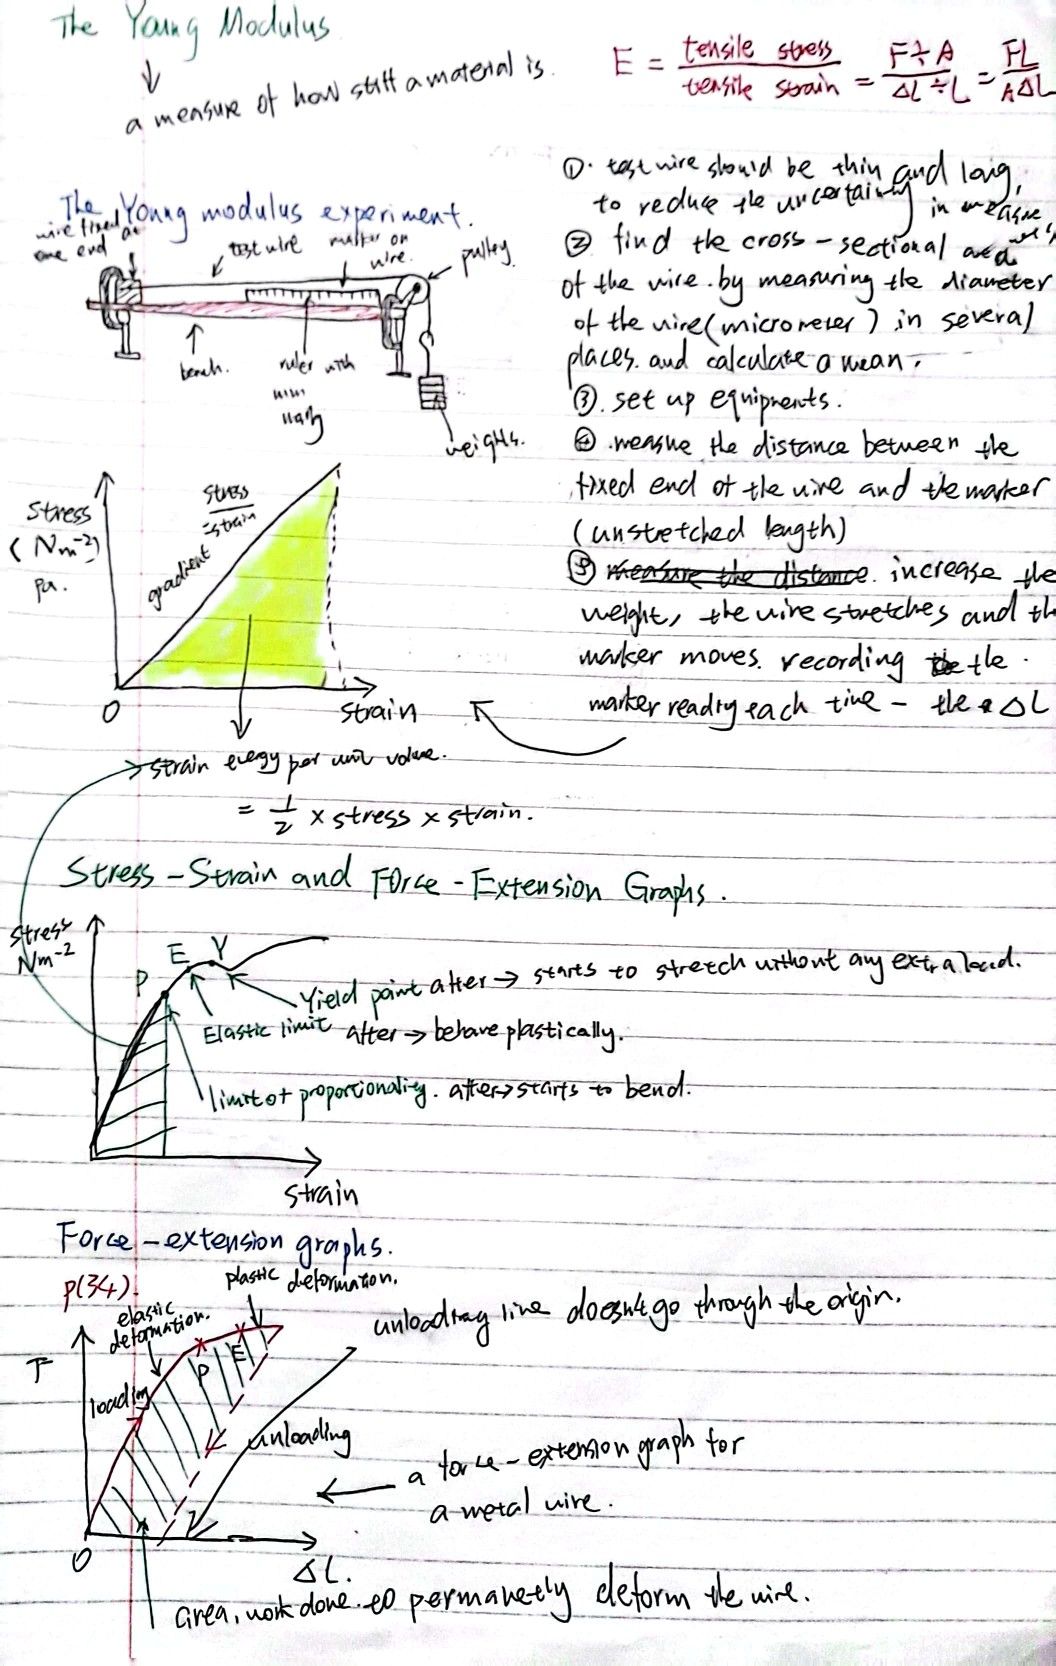 The Young Modulus
a measure of how stiff a material is.
E = tensile stress / tensile strain = F÷A / ΔL÷L = FL / AΔL
The Young modulus experiment.
wire fixed at
one end
test wire
marker on
wire.
pulley.
bench.
ruler with
mm
weights.
①. test wire should be thin and long,
to reduce the uncertainty in measure
② find the cross-sectional area
of the wire. by measuring the diameter
of the wire (micrometer) in several
places. and calculate a mean.
③. set up equipments.
④. measure the distance between the
fixed end of the wire and the marker
(unstretched length)
⑤ measure the distance. increase the
weight, the wire stretches and th
marker moves. recording the
marker reading each time - the ΔL
Stress
(Nm⁻²)
Pa.
gradient
stress
=strain
O
strain
strain energy per unit volume.
= 1/2 × stress × strain.
Stress-Strain and Force-Extension Graphs.
stress
Nm⁻²
P
E
Y
Yield point after → starts to stretch without any extra load.
Elastic limit after → behave plastically.
limit of proportionality. after → starts to bend.
strain
Force-extension graphs.
P(34).
elastic
deformation.
plastic deformation.
unloading line doesn't go through the origin.
F
loading
P
E
unloading
a force-extension graph for
a metal wire.
O
ΔL.
area, work done. to permanetly deform the wire.